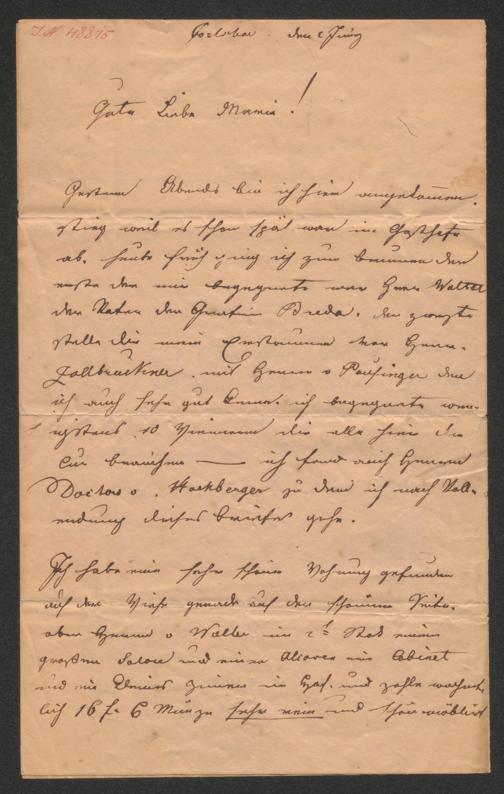 I.N. 48875
Carlsbad den 2 Juny
Gute Liebe Mamia!
Gestern Abends bin ich hier angekommen.
stieg weil es schon spät war im Gasthofe
ab. heute früh ging ich zum brunnen der
erste der mir begegnete war Herr Walter
der Vater der Graefin Breda. der zweyte
stelle dir mein Erstaunen vor Herr.
Zollbruckner. mit Herrn v Pausinger den
ich auch sehr gut kenne. ich begegnete wen-
igstens 10 Wienern die alle hier die
Cur brauchen — ich fand auch Herrn
Doctor v. Hochberger zu dem ich nach Voll-
endung dieses briefes gehe.
Ich habe eine sehr schöne Wohnung gefunden
auf der Wiese gerade auf der schönen Seite.
ober Herrn v Walter im 2t Stock einen
großen Salon und einen Alcoven ein Cabinet
und ein kleines Zimmer im Hof. und zahle wochent-
lich 16 f. C Münze sehr rein und schön möblirt